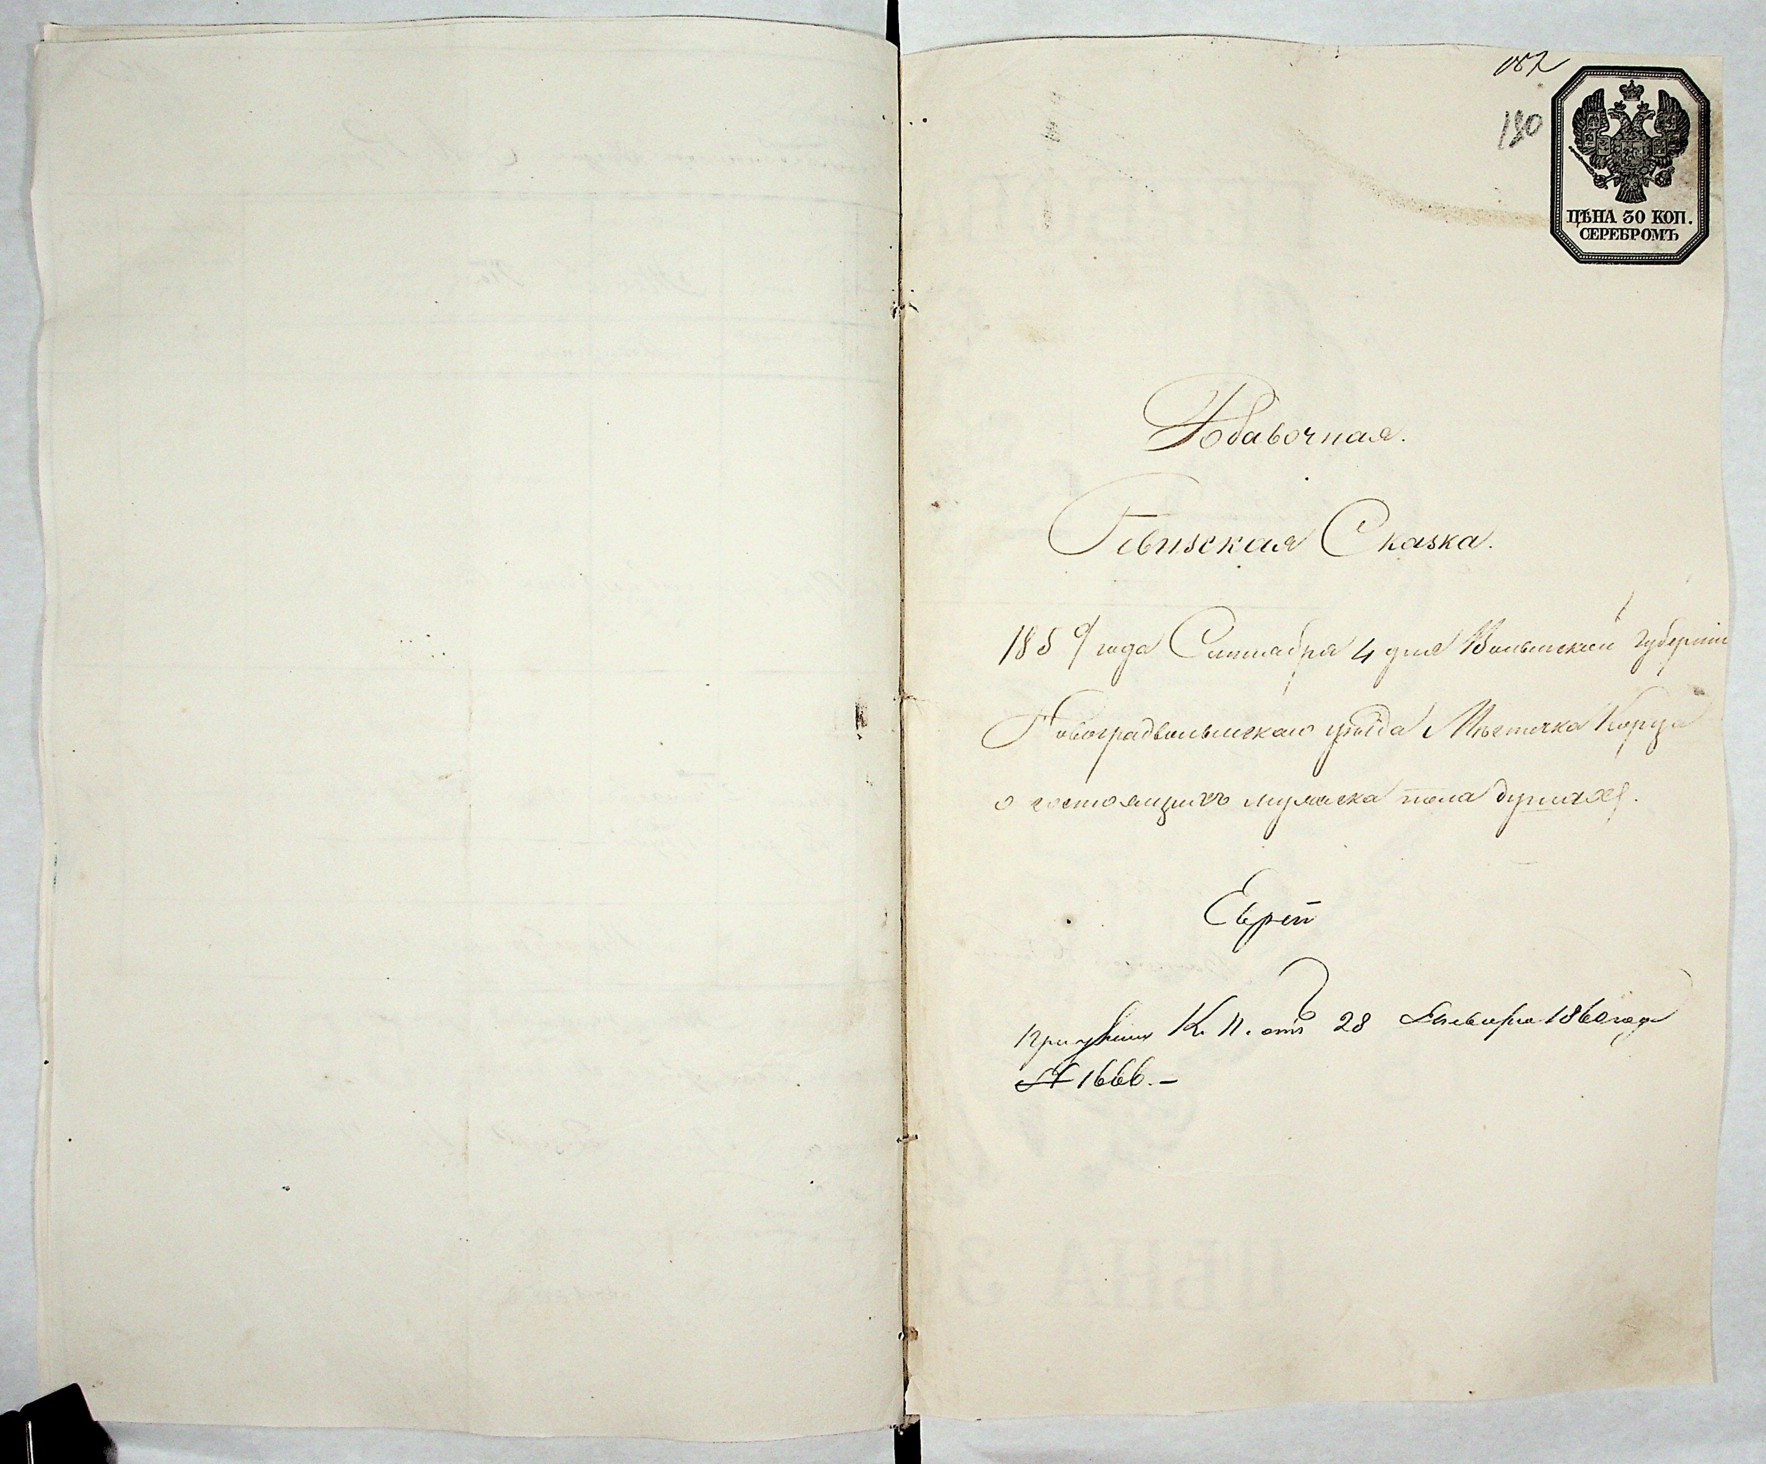 187
180
ЦѢНА 30 КОП.
СЕРЕБРОМЪ
Добавочная.
Ревизская Сказка.
1859 года Сентября 4 дня Волынской Губерніи
Новоградволынскаго уѣзда Мѣстечка Корца
о состоящихъ мужеска пола душахъ.
Евреи
К. П. отъ 28 Января 1860 года
№ 1666. —